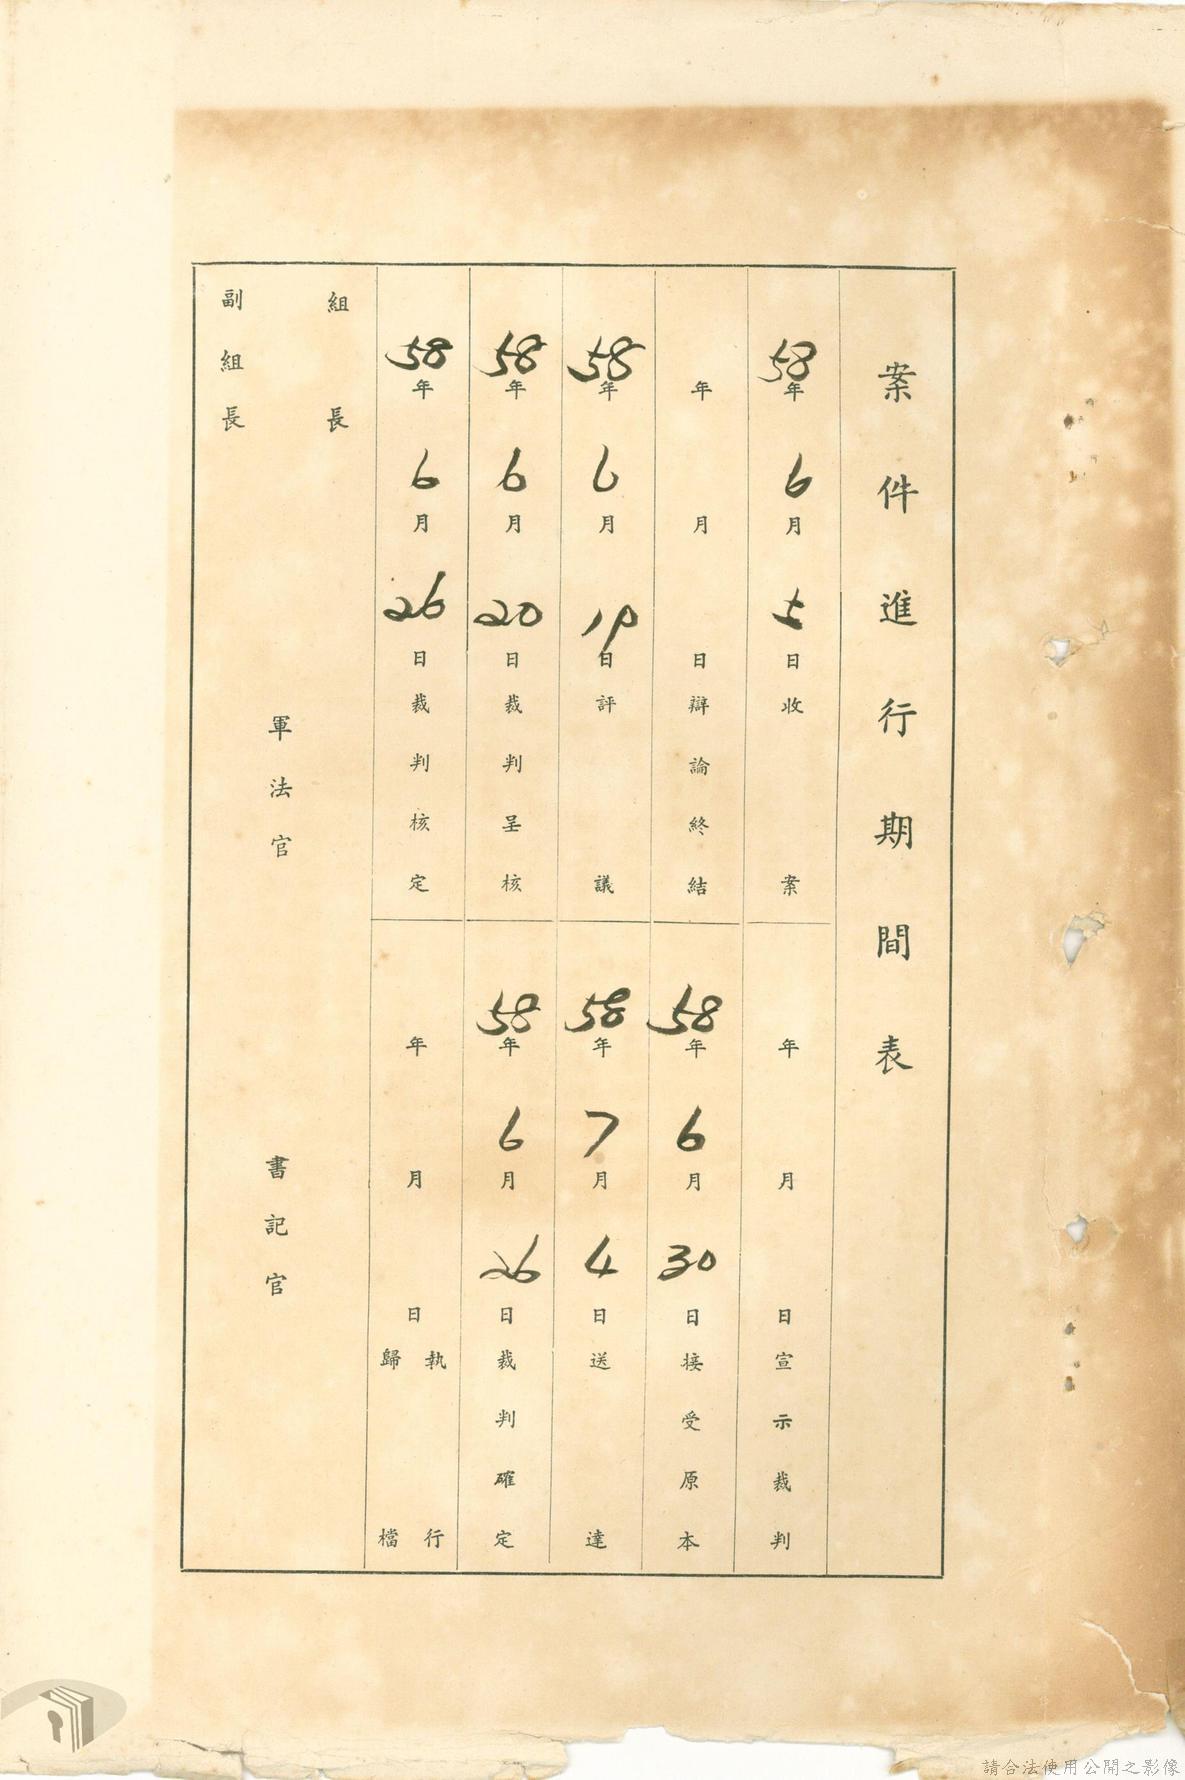 案件進行期間表
58年6月5日收案
年月日辯論終結
58年6月19日評議
58年6月20日裁判呈核
58年6月26日裁判核定
年月日宣示裁判
58年6月30日接受原本
58年7月4日送達
58年6月26日裁判確定
年月日執行
歸檔
組長
副組長
軍法官
書記官
請合法使用公開之影像